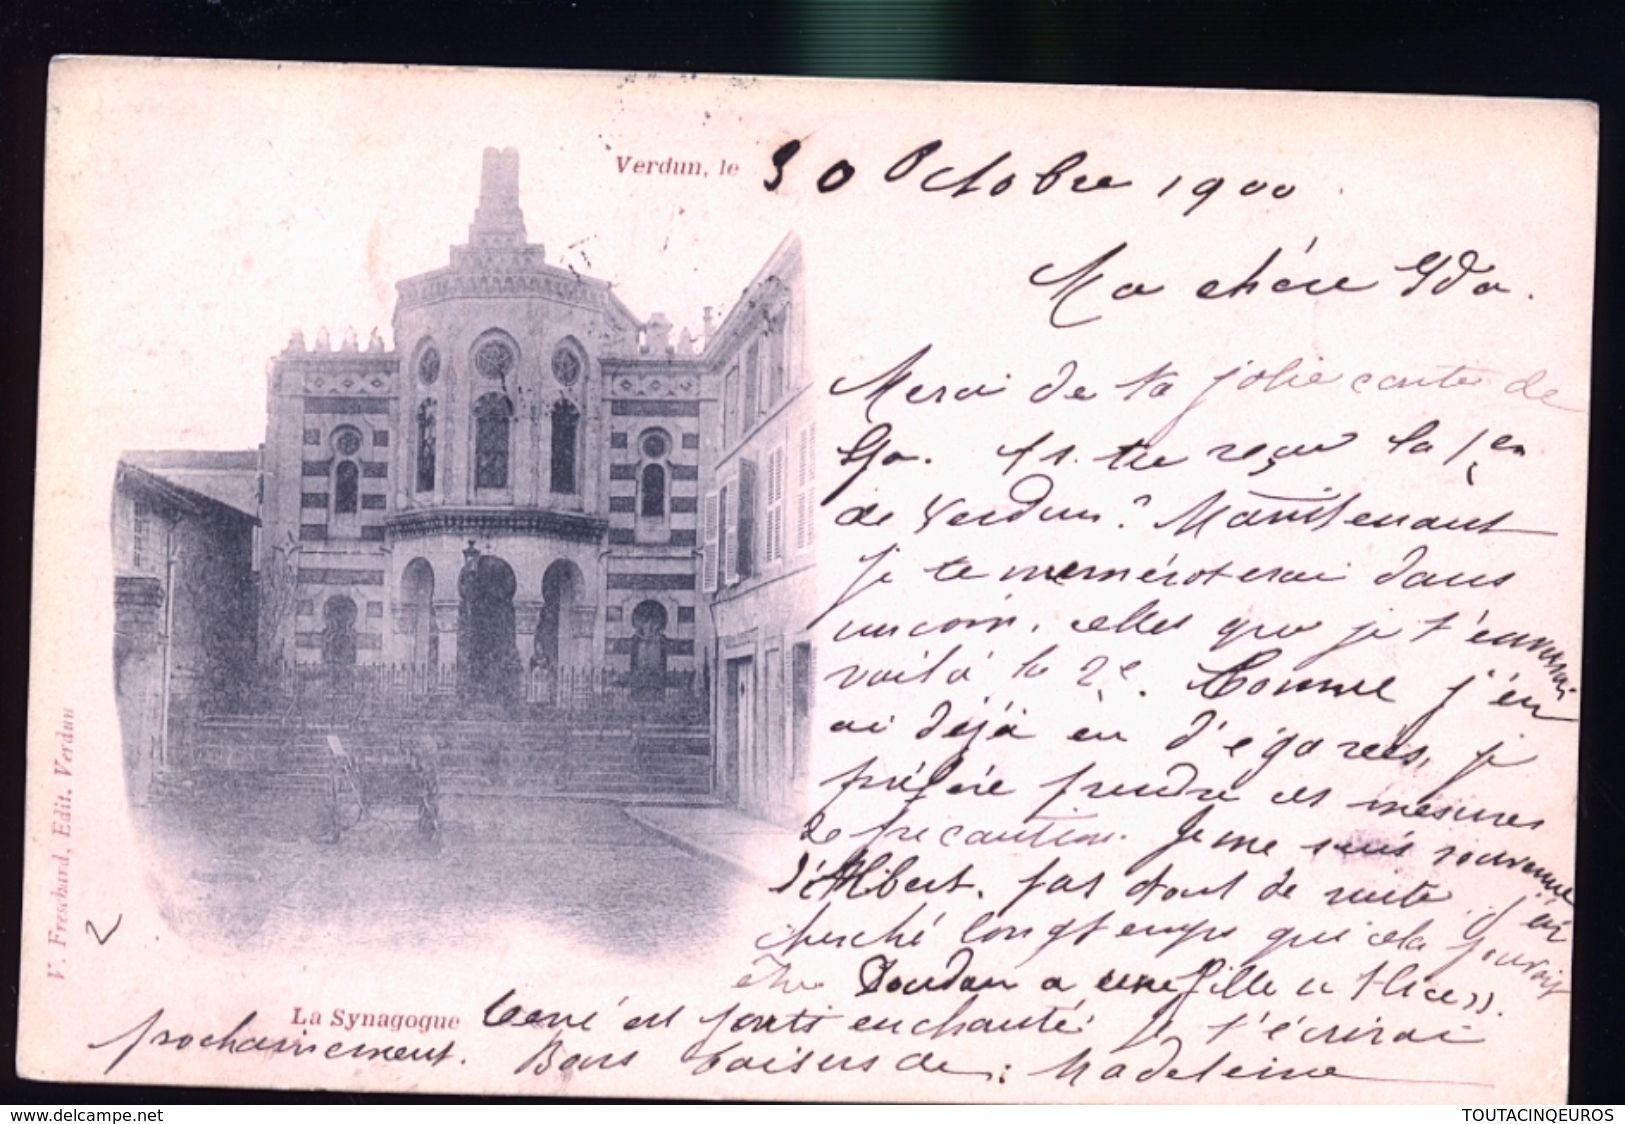 Verdun, le 30 Octobre 1900
Ma chère Ida.
Merci de ta jolie carte de
tu reçu la 1ère
de Verdun? Maintenant
je te numéroterai dans
un coin. celles que je t'enverrai
voilà la 2e. Comme j'en
ai déjà eu d'égarées, je
préfère prendre ces mesures
de précaution. Je me suis souvenue
d'Albert. pas tout de suite. j'ai
cherché longtemps qui cela pouvait
être. Doudou a une fille "Alice".
La Synagogue
René est parti enchanté je t'écrirai
prochainement. Bons baisers de: Madeleine
V. Freschard, Edit. Verdun
2
TOUTACINQEUROS